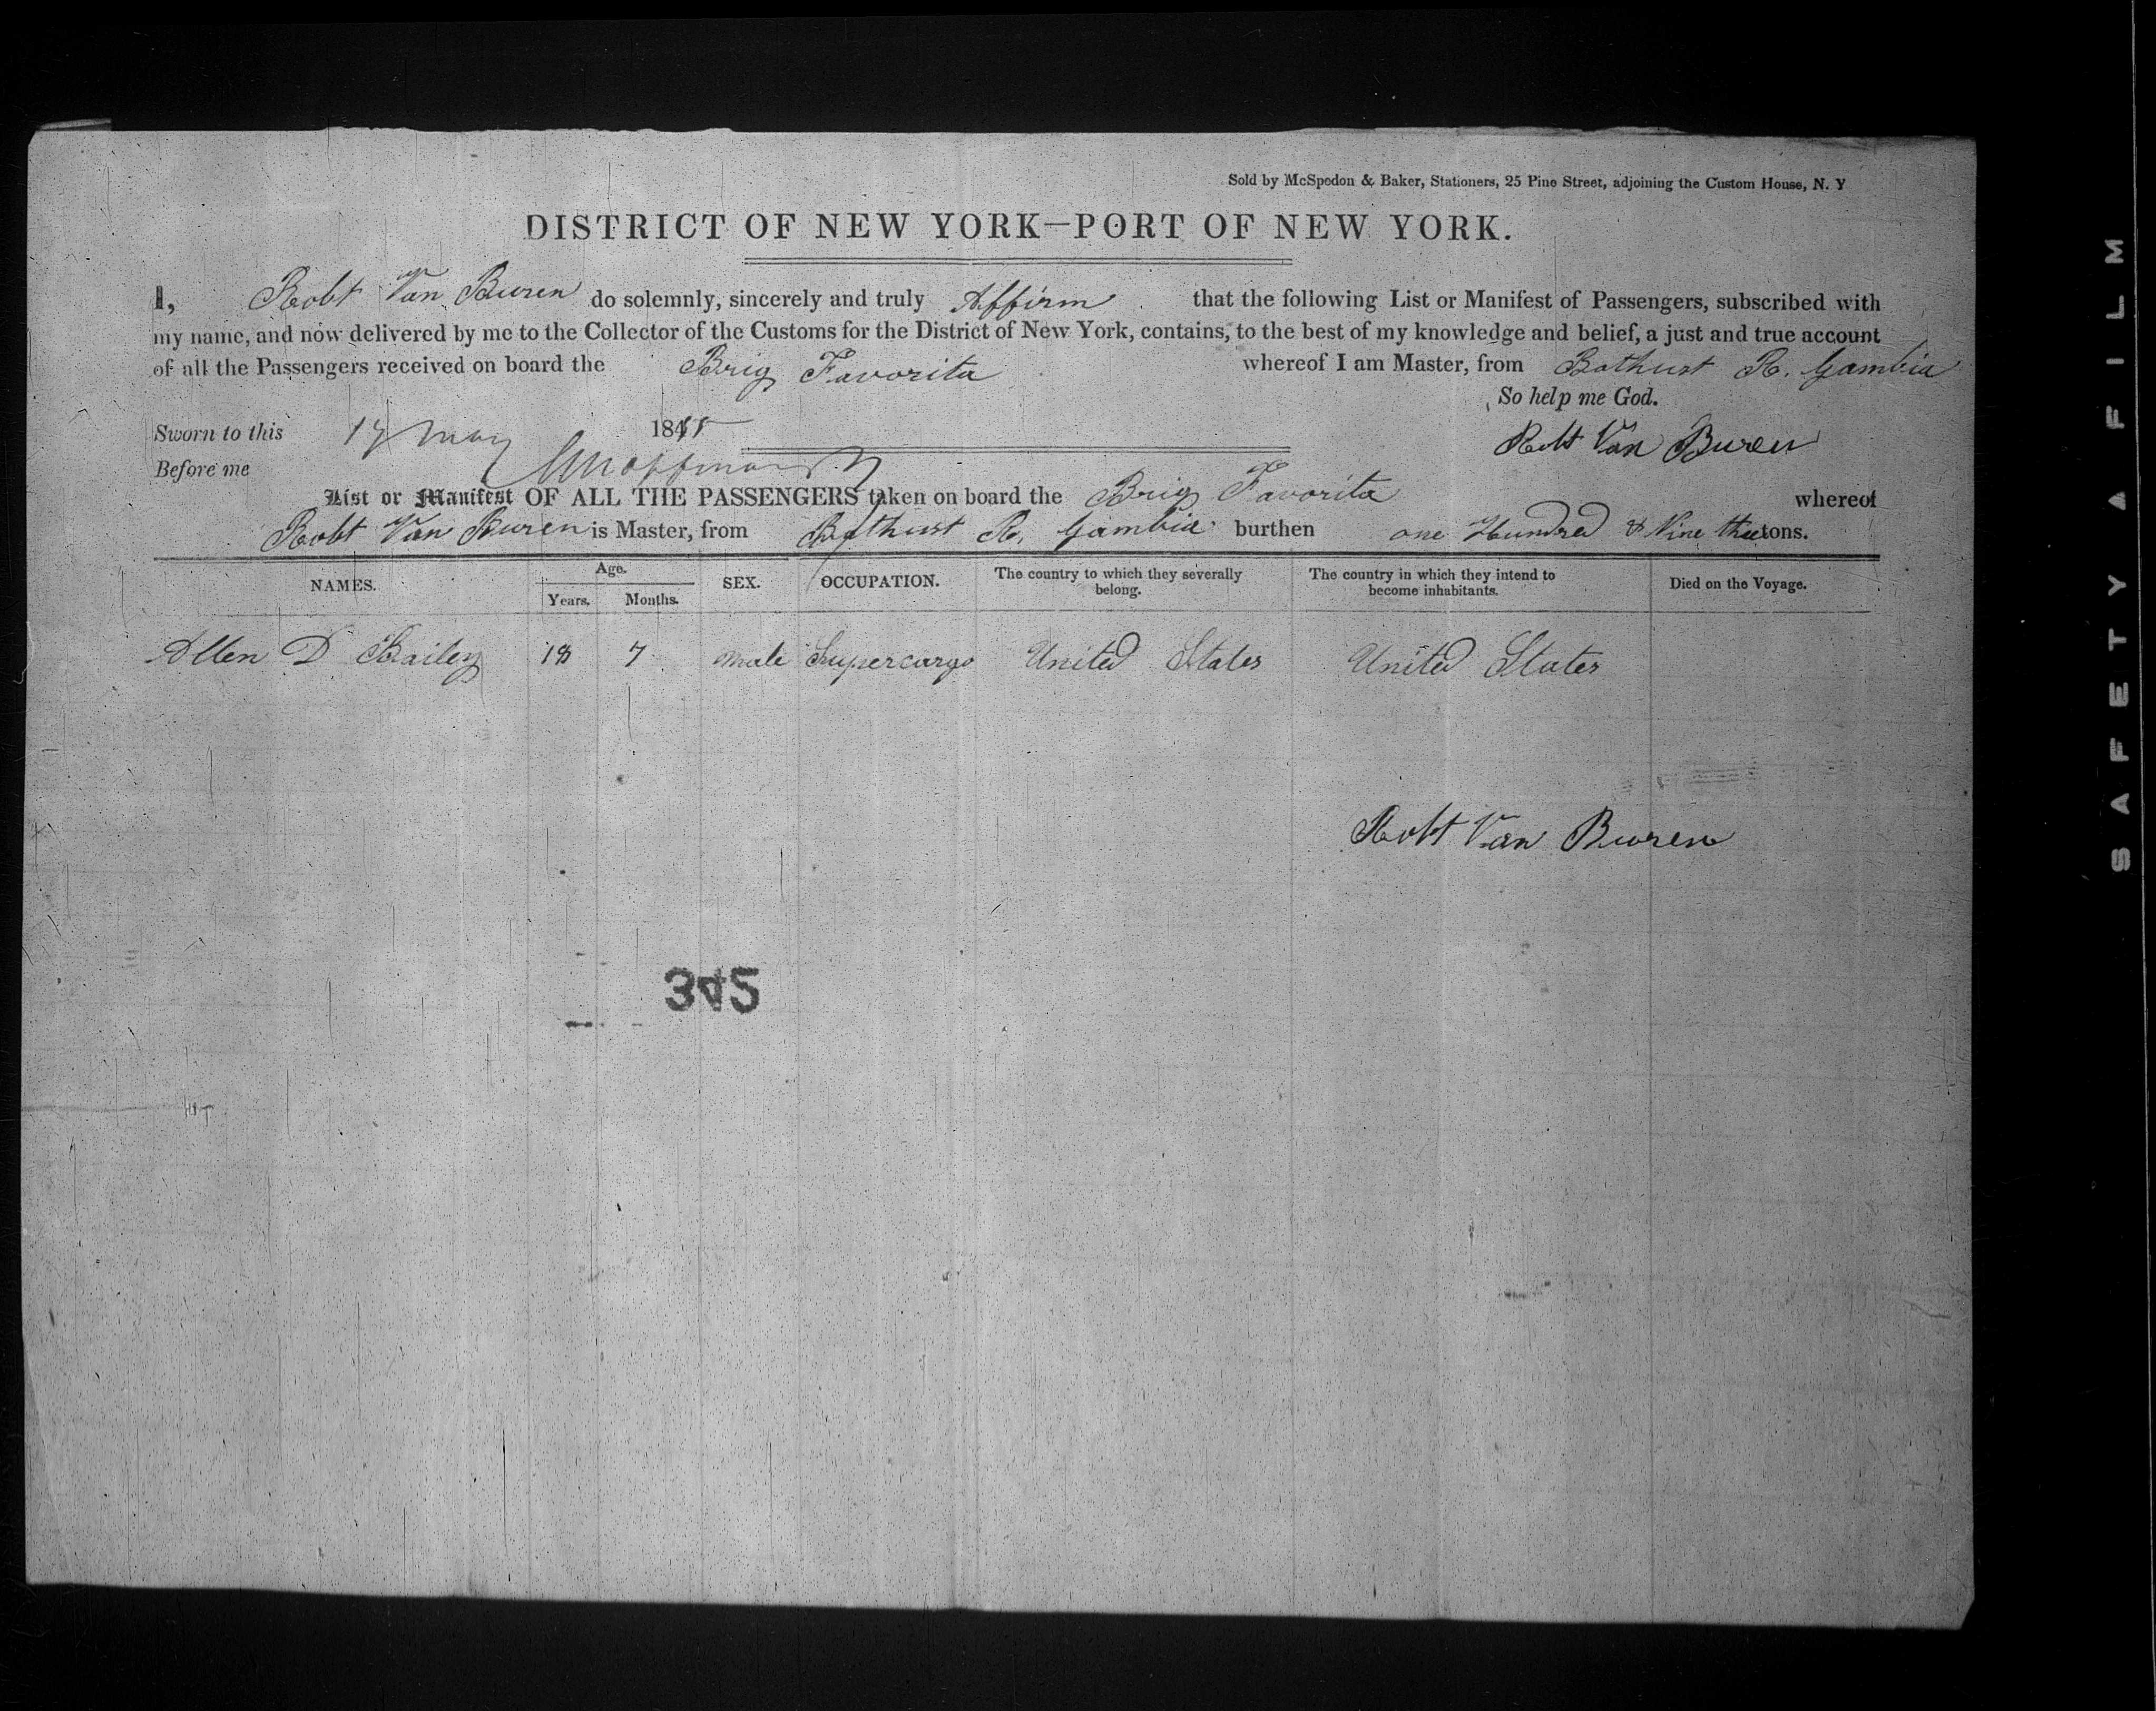 Sold by McSpedon & Baker, Stationers, 25 Pine Street, adjoining the Custom House, N. Y
DISTRICT OF NEW YORK—PORT OF NEW YORK.
I, Robt Van Buren do solemnly, sincerely and truly Affirm that the following List or Manifest of Passengers, subscribed with
my name, and now delivered by me to the Collector of the Customs for the District of New York, contains, to the best of my knowledge and belief, a just and true account
of all the Passengers received on board the Brig Favorita whereof I am Master, from Bathust R. Gambia
So help me God.
Sworn to this 17 May 184 Robt Van Buren
Before me
List or Manifest OF ALL THE PASSENGERS taken on board the Brig Favorita whereof
Robt Van Buren is Master, from Bathust R. Gambia burthen one Hundred & Nine tons.
NAMES. Age. SEX. OCCUPATION. The country to which they severally belong. The country in which they intend to become inhabitants. Died on the Voyage.
Years. Months.
Allen D Bailey 18 7 male Supercargo United States United States
Robt Van Buren
SAFETY FILM